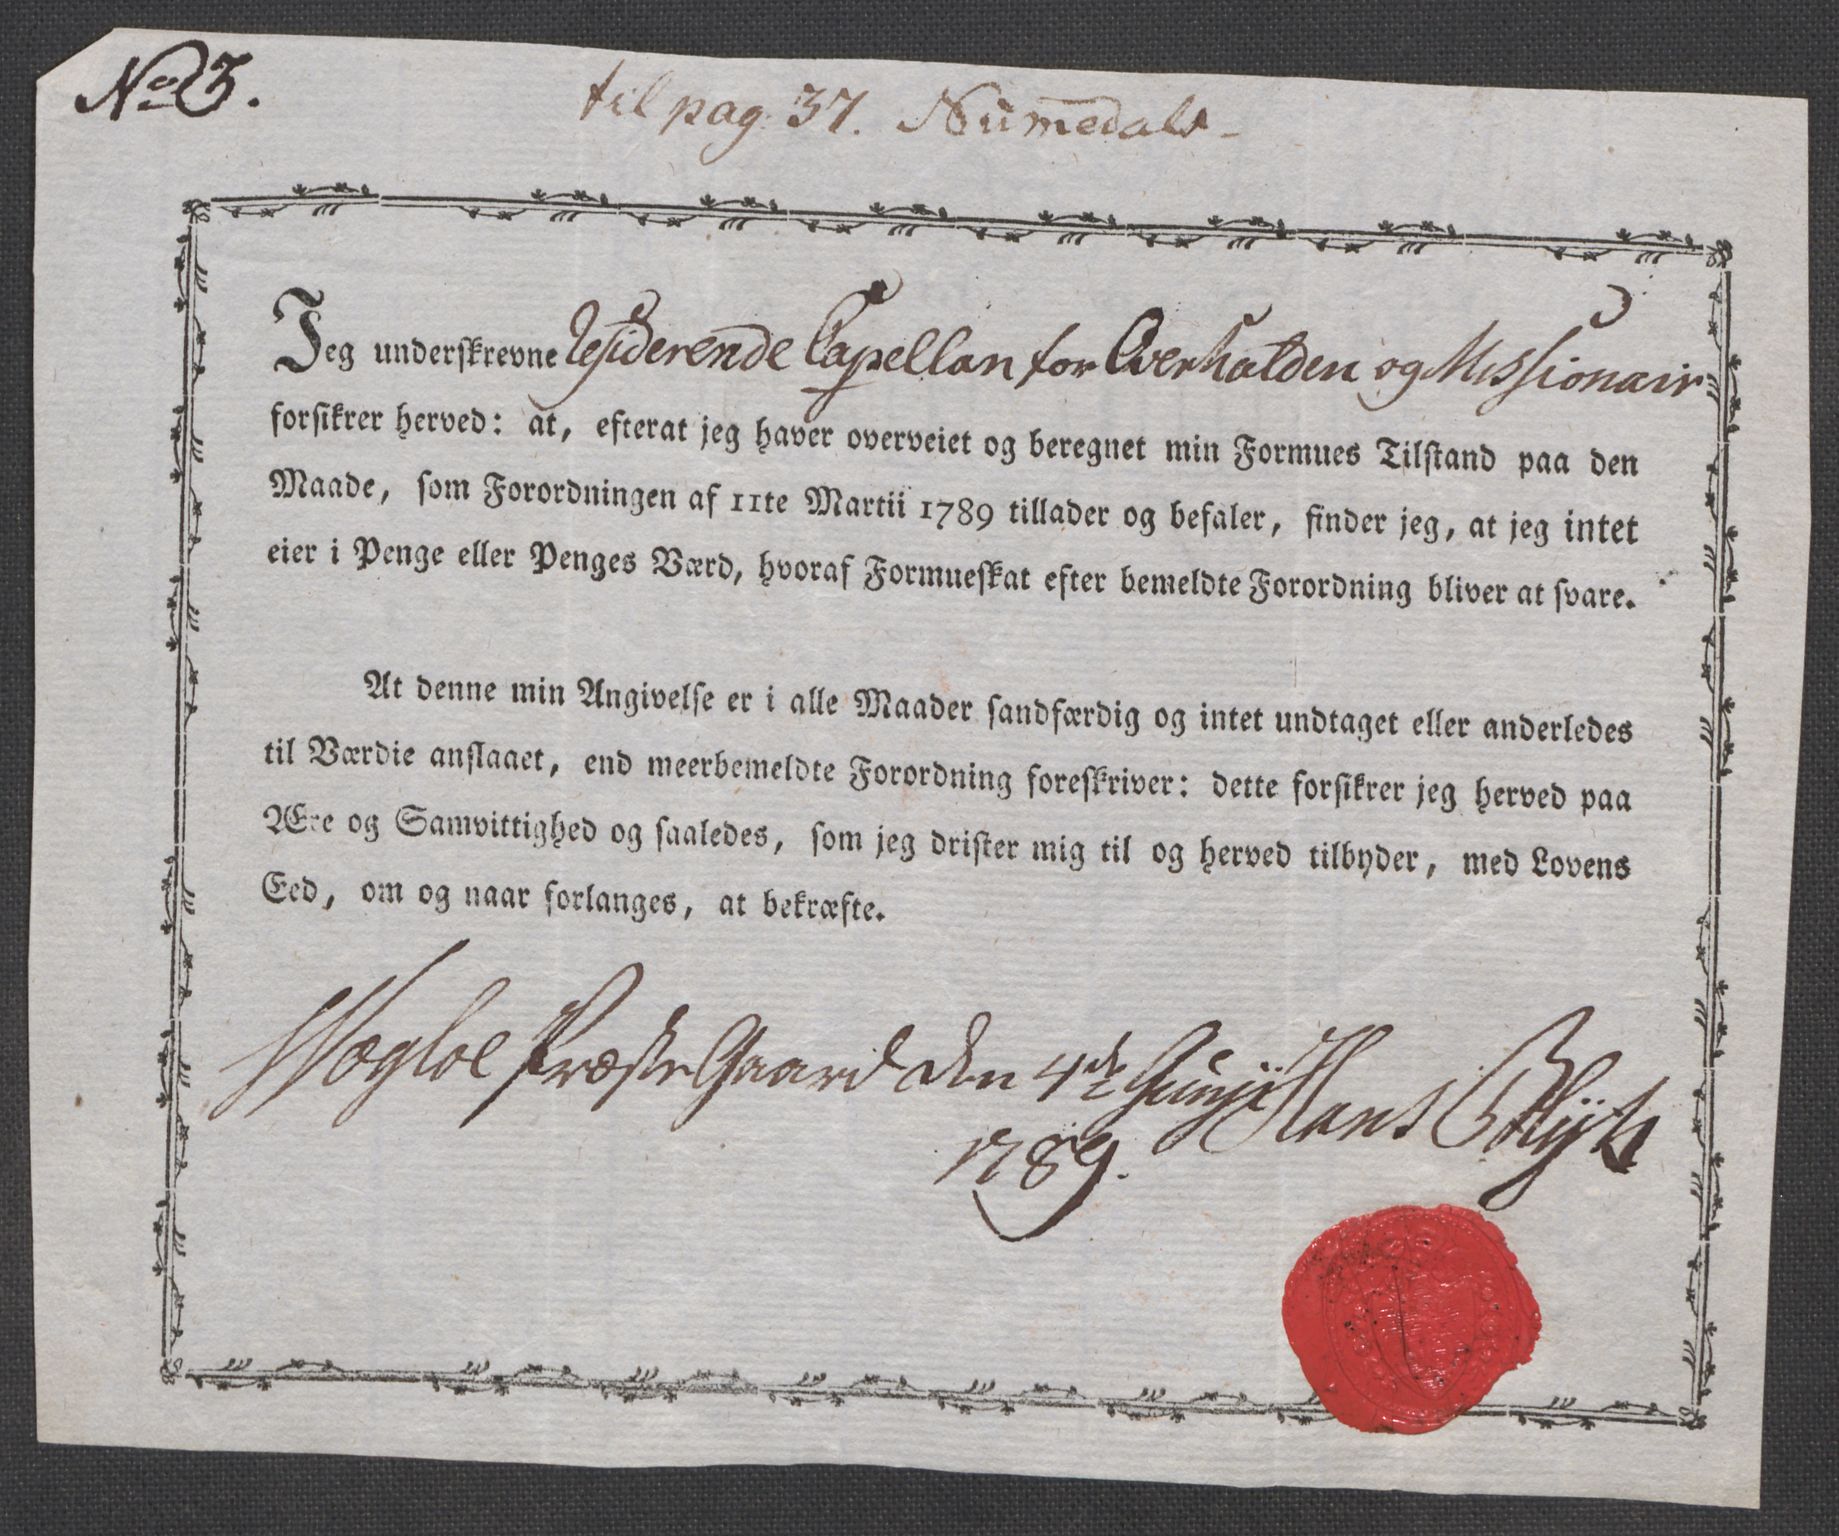 No 3.
til pag. 37. Numedals
Jeg underskrevne residerende Capellan for Overhalden og Missionair
forsikrer herved: at, efterat jeg haver overveiet og beregnet min Formues Tilstand paa den
Maade, som Forordningen af 11te Martii 1789 tillader og befaler, finder jeg, at jeg intet
eier i Penge eller Penges Værd, hvoraf Formueskat efter bemeldte Forordning bliver at svare.
At denne min Angivelse er i alle Maader sandfærdig og intet undtaget eller anderledes
til Værdie anslaaet, end meerbemeldte Forordning foreskriver: dette forsikrer jeg herved paa
Ære og Samvittighed og saaledes, som jeg drister mig til og herved tilbyder, med Lovens
Eed, om og naar forlanges, at bekræfte.
Præste Gaard den 4de Junÿ Hans
1789.